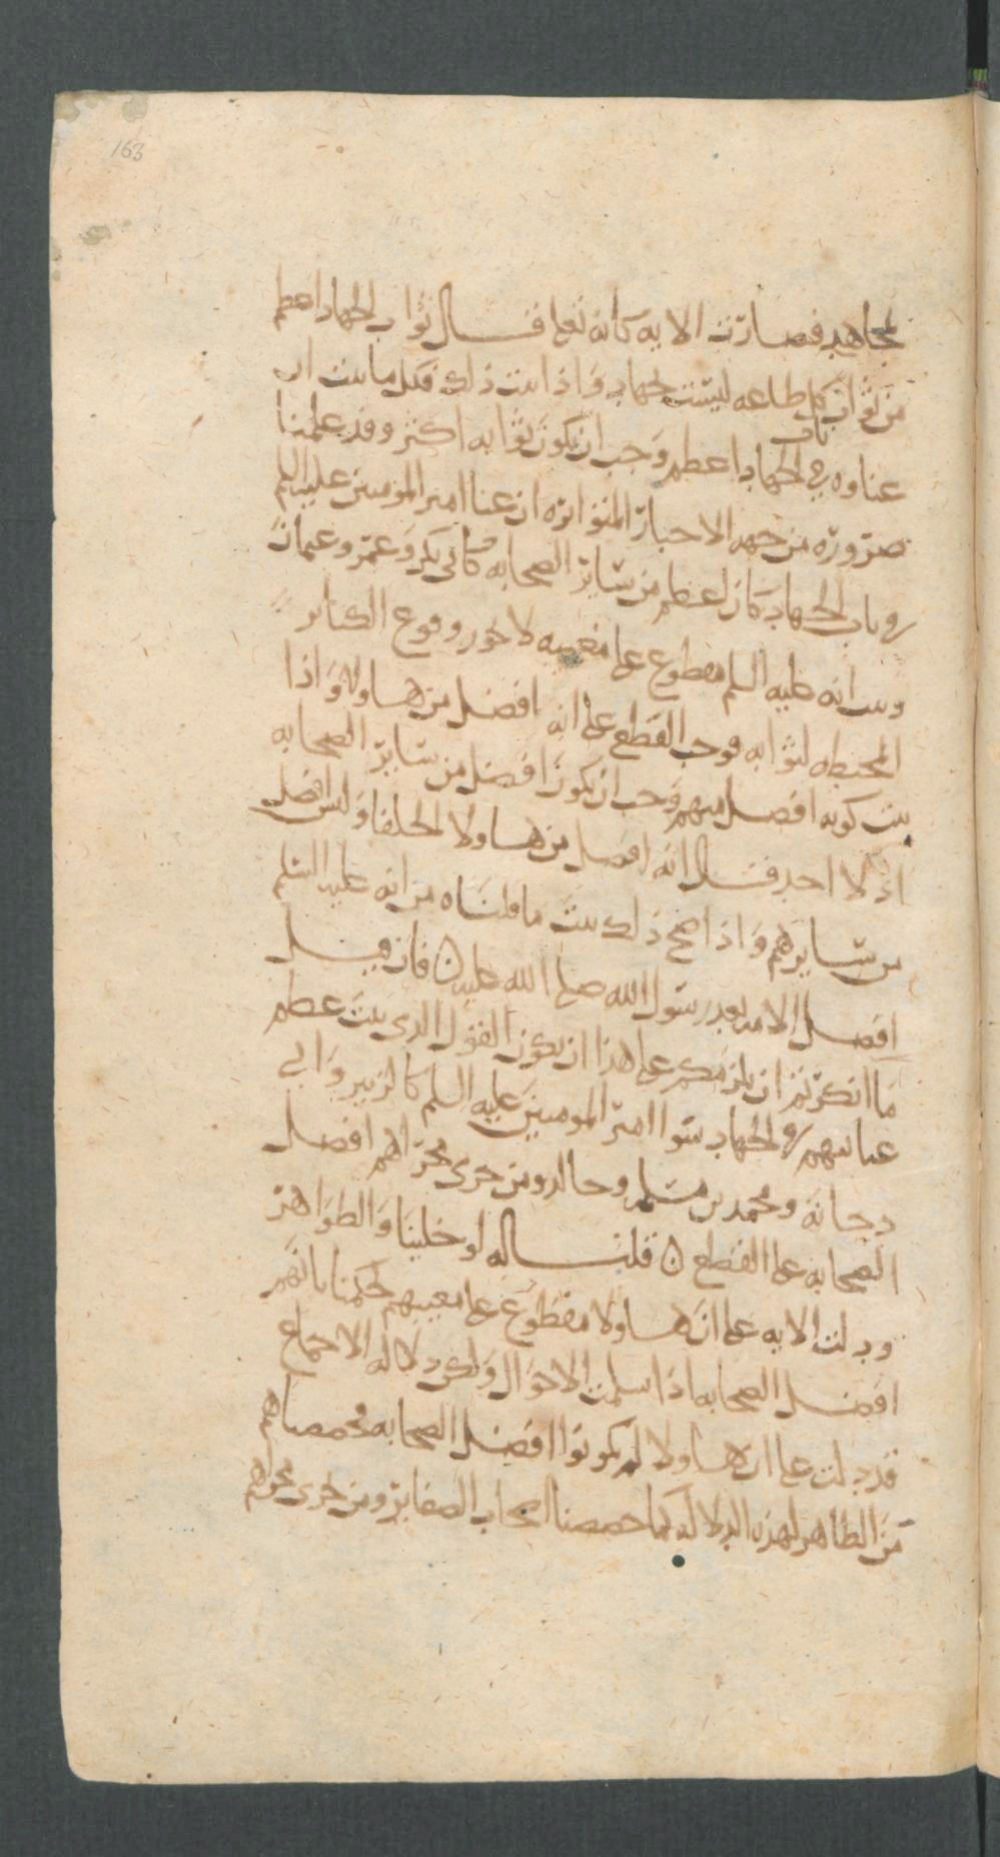 163
المجاهد فصارت الايه كانه تعلى قال ثواب الجهاد اعظم
من ثواب كل طاعه ليست بجهاد واذا ثبت ذلك فكل ما ثبت ان
عناوه في باب الجهاد اعظم وجب ان يكون ثوابه اكثر وقد علمنا
ضرورة من جهه الاخبار المتواتره ان عنا امير المومنين عليه السلم
في باب الجهاد كان اعظم من سائر الصحابه كابي بكر وعمر وعثمان
وثبت انه عليه السلم مقطوع على مغيبه لا يجوز وقوع الكبائر
المحبطه لثوابه فوجب القطع على انه افضل من هاولا واذا
ثبت كونه افضل منهم وجب ان يكون افضل من سائر الصحابه
اذ لا احد قال انه افضل من هاولا الخلفا وليس افضل
من سايرهم واذا صح ذلك ثبت ما قلناه من انه عليه السلم
افضل الامه بعد رسول الله صلى الله عليه ن فان قيل
ما انكرتم ان يلزمكم على هذا ان يكون القول الذي ثبت عظم
عنائهم في الجهاد سوا امير المومنين عليه السلم كالزبير وابي
دجانه ومحمد بن مسلمه وخالد ومن جرى مجراهم افضل
الصحابه على القطع ن قلنا له لو خلينا والظواهر
ودلت الايه على ان هاولا مقطوع على مغيبهم لحكمنا بانهم
افضل الصحابه اذا سلمت الاحوال ولكن دلاله الاجماع
قد دلت على ان هاولا لم يكونوا افضل الصحابه فخصصناهم
من الظاهر لهذه الدلاله كما خصصنا اصحاب الصغائر ومن جرى مجراهم